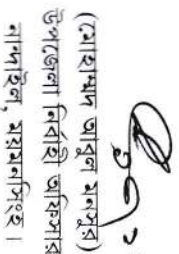 (মোহাম্মদ আবুল মনসুর)
উপজেলা নির্বাহী অফিসার
নান্দাইল, ময়মনসিংহ।